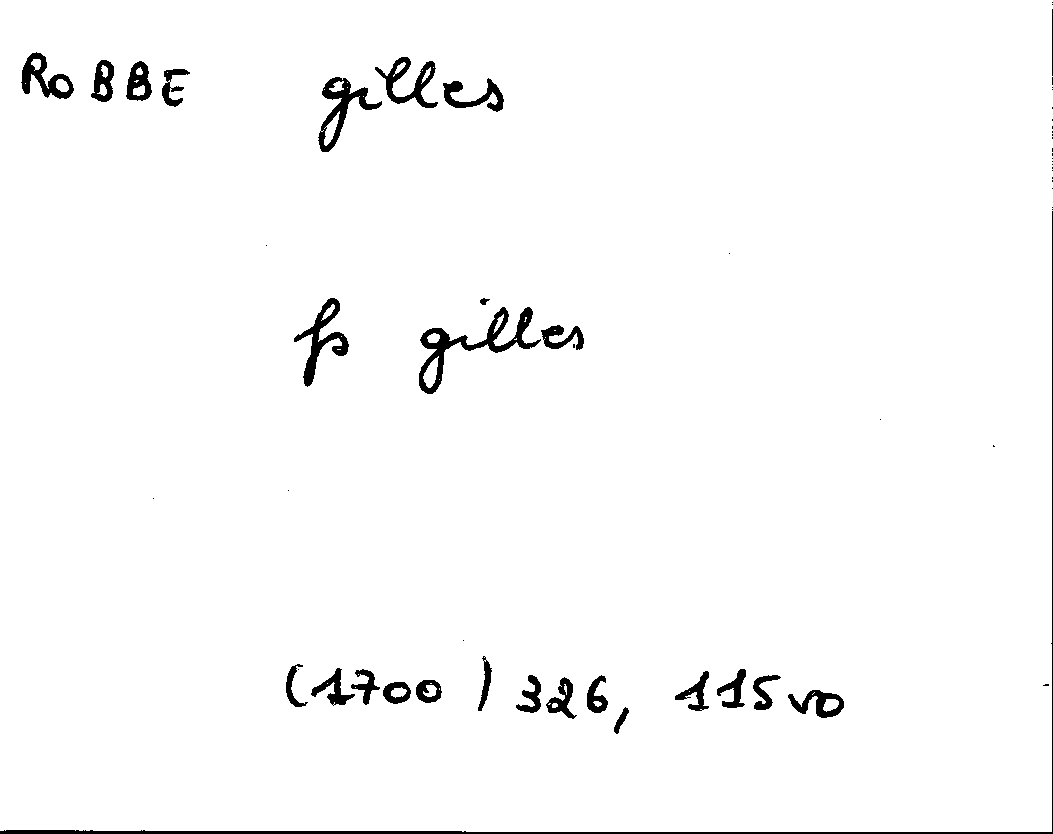 ROBBE gilles
fs gilles
(1700) 326, 115vo